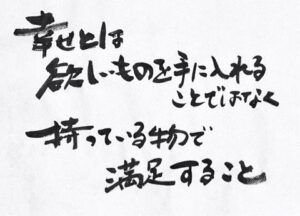 幸せとは
欲しいものを手に入れる
ことではなく
持っている物で
満足すること